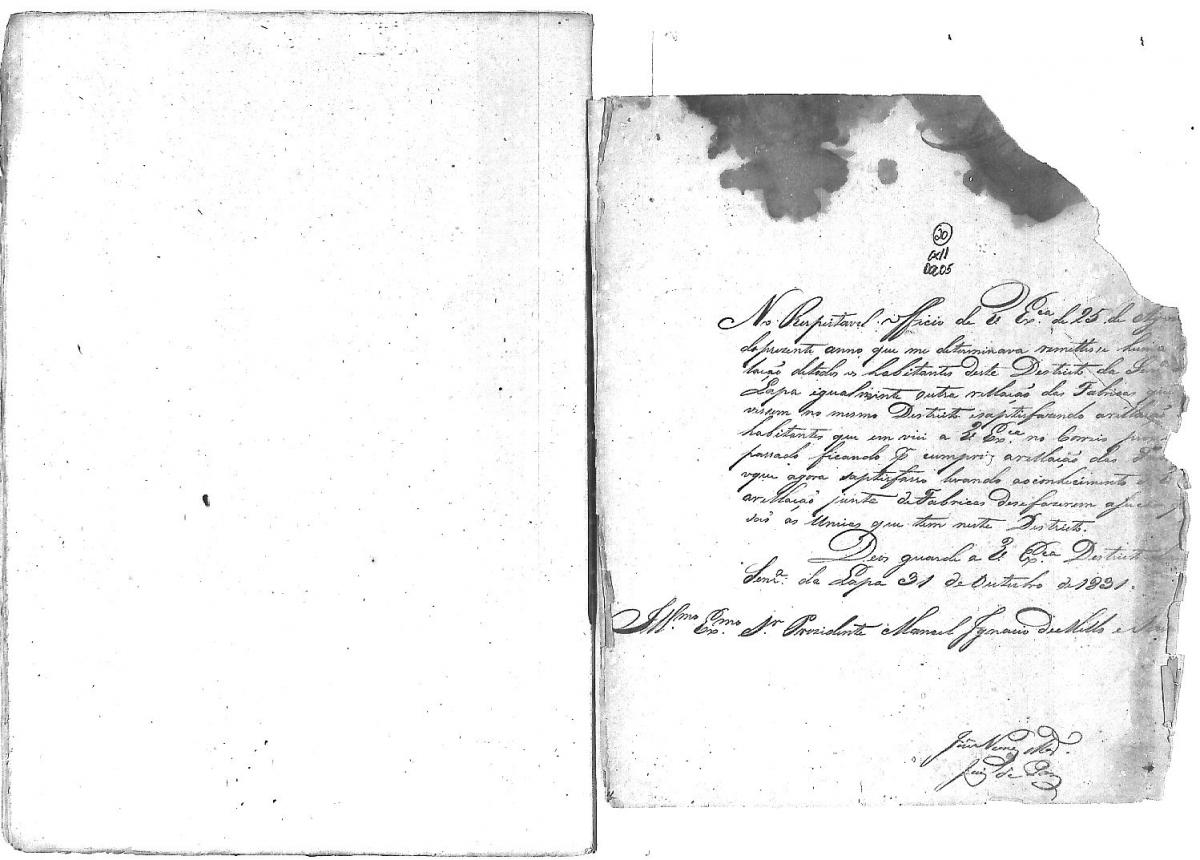 30
cx11
D2.05
No Respeitavel Officio de V Ex.cia de 25 de
do prezente anno que me determinava remettesse huma
lação de todos os habitantes deste Destricto da Senr.a
Lapa igualmente outra rellação das Fabricas que
no mesmo Destricto saptisfazendo a rellação
habitantes que em viei a V Ex.cia no Correio
passado ficando p.r cumprir a rellação das
o que agora saptisfasso levando ao conhecimento de V
a rellação junta de Fabricas
são as Unicas que tem neste Destricto.
Deos guarde a V Ex.cia Destricto
Senr.a da Lapa 31 de Outubro de 1831.
Ill.mo Ex.mo Sr Prezidente Manoel Ignacio de Mello e
João Nunes
Juiz de Paz